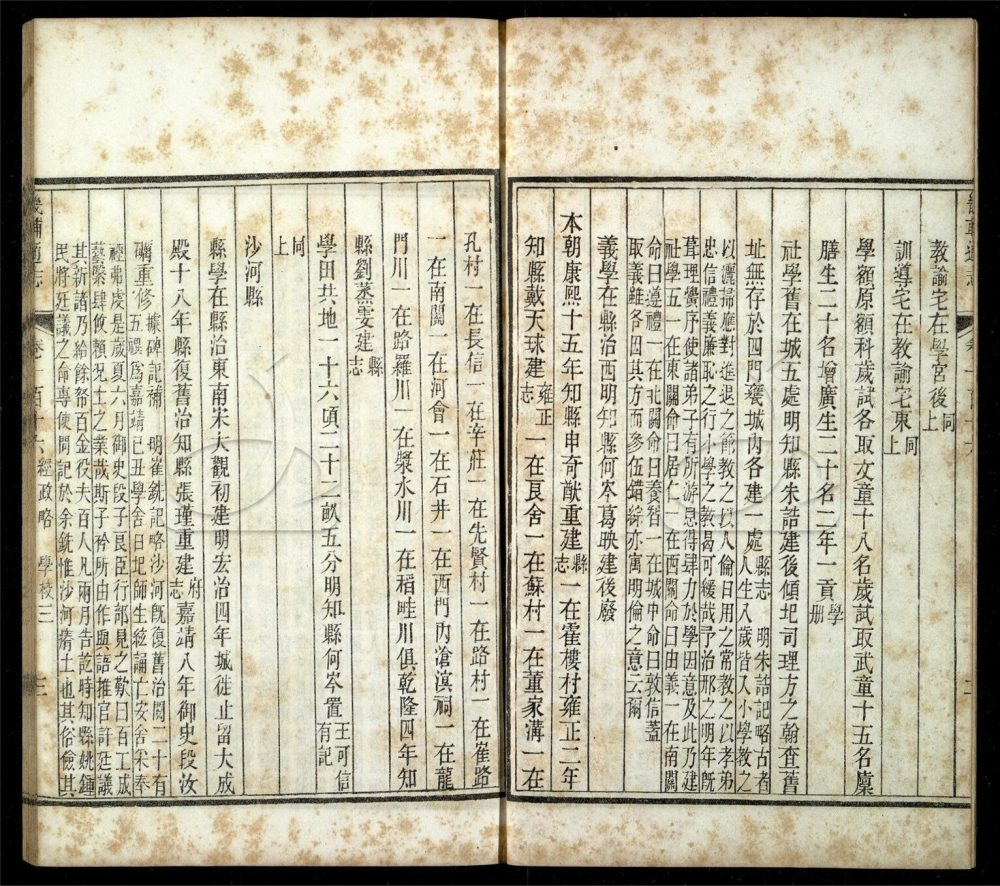 教諭宅在學宮後同上
訓導宅在教諭宅東同上
學額原額科歲試各取文童十八名歲試取武童十五名廩
膳生二十名增廣生二十名二年一貢學册
社學舊在城五處明知縣朱誥建後傾圮司理方之翰查舊
址無存於四門甕城內各建一處縣志 明朱誥記略古者人生八歲皆入小學教之
以灑掃應對進退之節教之以人倫日用之常教之以孝弟
忠信禮義廉恥之行小學之教曷可緩哉予治邢之明年既
葺理黌序使諸弟子有所游息得肆力於學因意及此乃建
社學五一在東關命曰居仁一在西關命曰由義一在南關
命曰遵禮一在北關命曰養智一在城中命曰敦信蓋
取義雖各因其方而參伍錯綜亦寓明倫之意云爾
義學在縣治西明知縣何岑葛映建後廢
本朝康熙十五年知縣申奇猷重建縣志一在霍樓村雍正二年
知縣戴天球建雍正志一在良舍一在蘇村一在董家溝一在
孔村一在長信一在辛莊一在先賢村一在路村一在崔路
一在南關一在河會一在石井一在西門內滄溟祠一在龍
門川一在路羅川一在漿水川一在稻畦川俱乾隆四年知
縣劉蒸雯建縣志
學田共地一十六頃二十二畝五分明知縣何岑置王可信有記
同上
沙河縣
縣學在縣治東南宋大觀初建明宏治四年城徙止留大成
殿十八年縣復舊治知縣張瑾重建府志嘉靖八年御史段汝
礪重修據碑記補 明崔銑記略沙河既復舊治閱二十有五禩爲嘉靖己丑學舍日圮師生絃誦亡安舍采奉
禋弗虔是歲夏六月御史段子艮臣行部見之歎曰百工成
藝槩肆攸賴況士之業哉斯子衿所由作與語推官許廷議
其新諸乃給餘帑百金役夫百人凡兩月告訖時知縣姚鍾
民將廷議之命專使問記於余銑惟沙河瘠土也其俗儉其
畿輔通志 卷一百十六 經政略 學校三 三